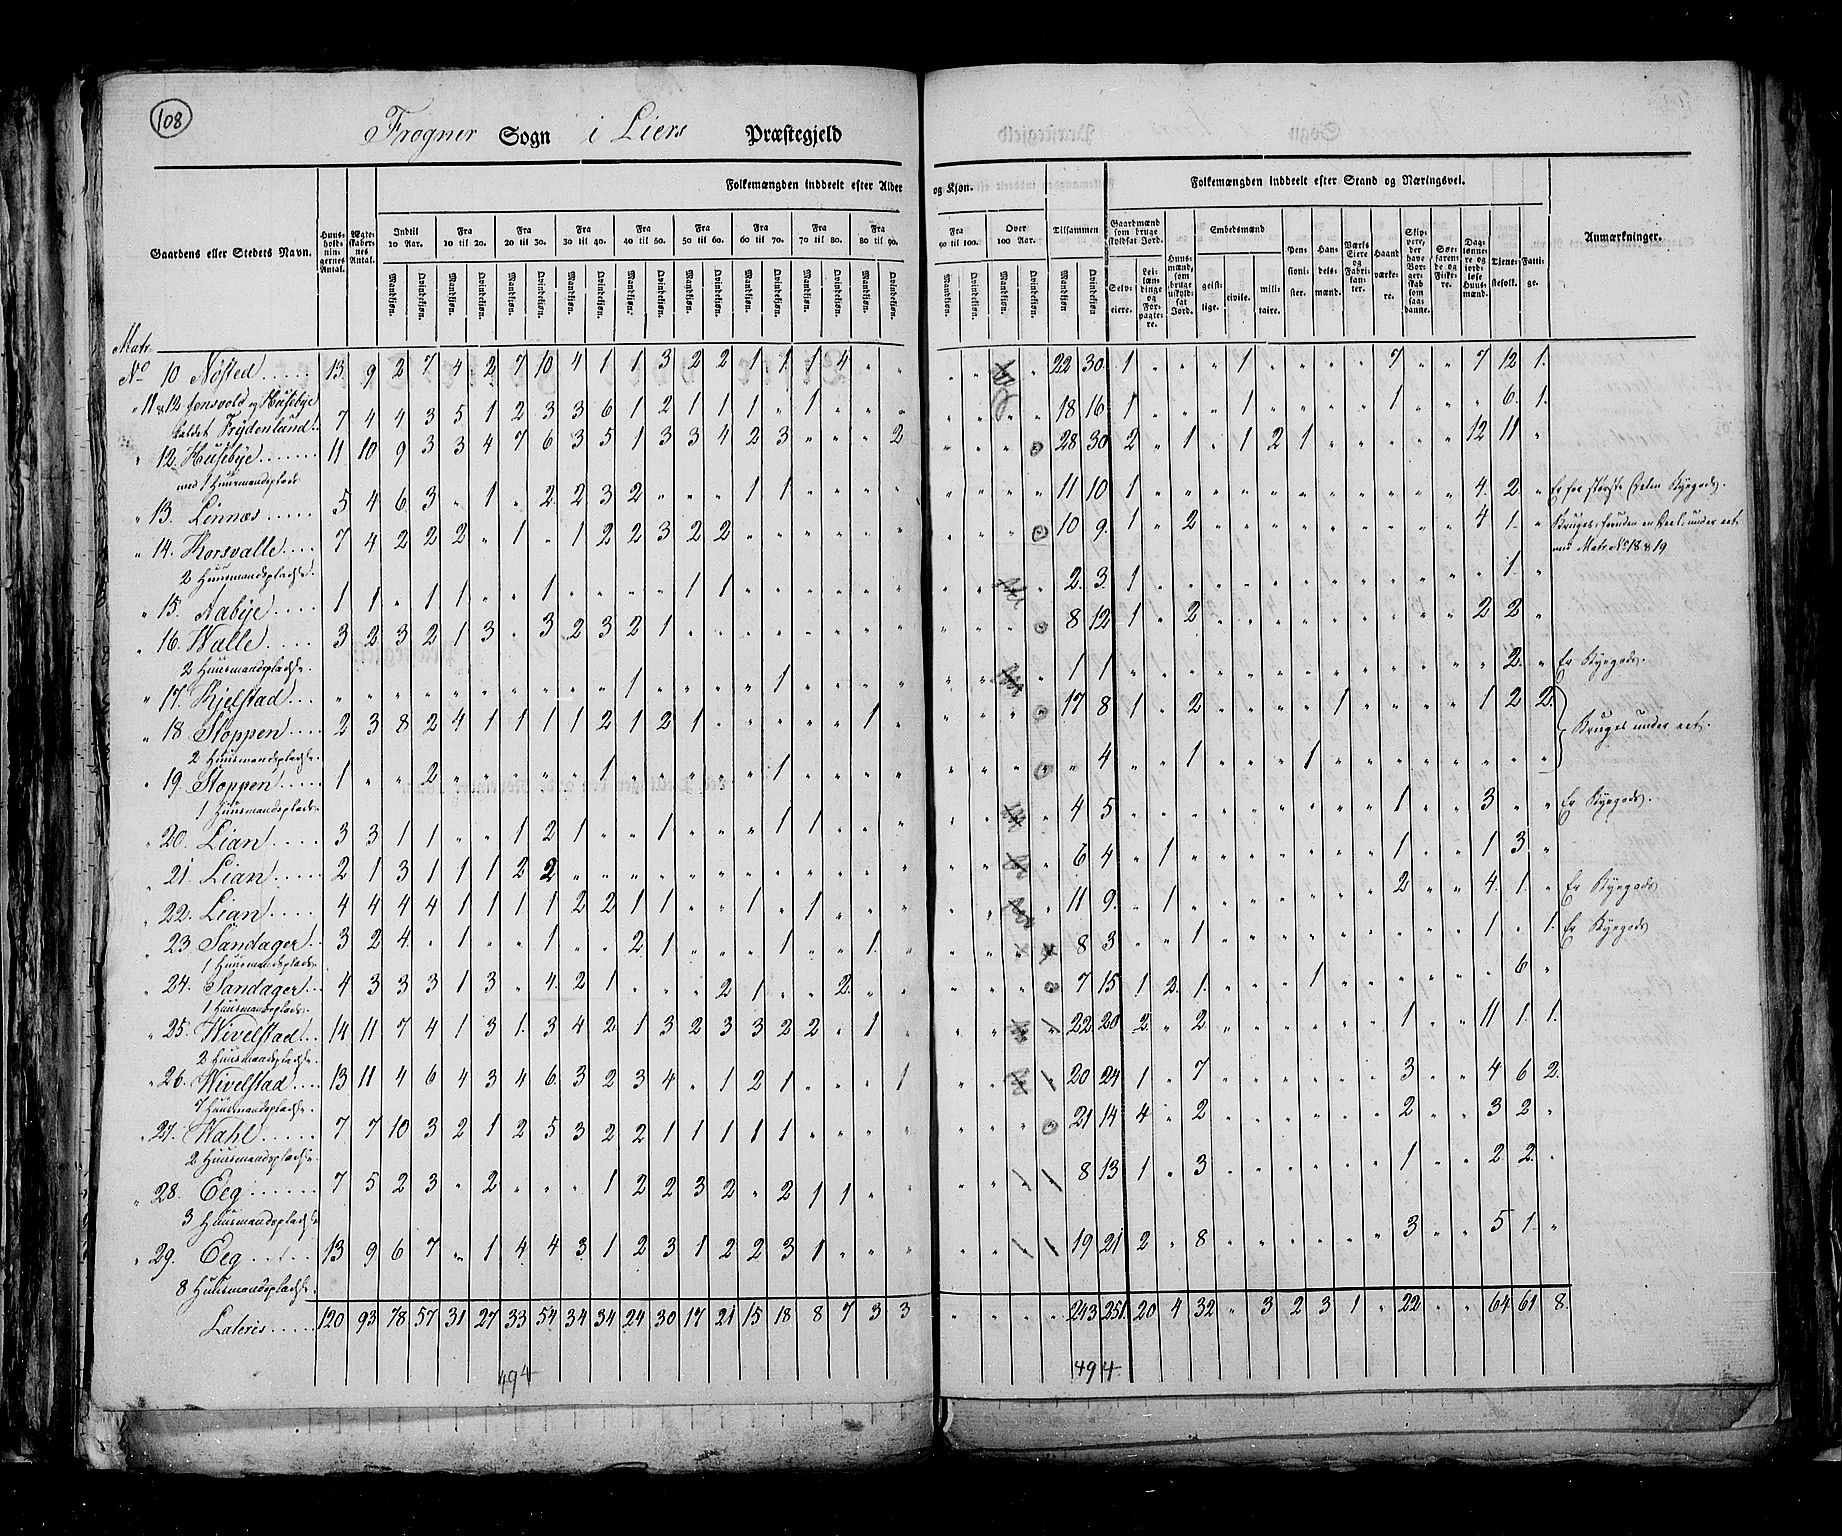 108
Frogner Sogn i Liers Præstegjeld
Folkemængden inddeelt efter Alder og Kjøn.
Folkemængden inddeelt efter Stand og Næringsvei.
Gaardens eller Stedets Navn.
Huus-holdningernes Antal.
Ægteskabernes Antal.
Indtil 10 Aar.
Fra 10 til 20.
Fra 20 til 30.
Fra 30 til 40.
Fra 40 til 50.
Fra 50 til 60.
Fra 60 til 70.
Fra 70 til 80.
Fra 80 til 90.
Fra 90 til 100.
Over 100 Aar.
Tilsammen
Mandkjøn. Qvindekjøn.
Gaardmænd som bruge skyldsat Jord.
Selveiere.
Leilændinge og Forpagtere.
Huusmænd, som bruge uskyldsat Jord.
Embedsmænd
geistlige. civile. militaire.
Pensionister.
Handelsmænd.
Værks Eiere og Fabrikanter.
Haandværkere.
Skippere, der have Borgerskab som saadanne.
Søefarende og Fiskere.
Dagleiere og jordløse Huusmænd.
Tjenestefolk.
Fattige.
Anmærkninger.
Matr.
No 10 Nøsted 13 9 2 7 4 2 7 10 4 1 1 3 2 2 1 1 1 4 " " " " " 22 30 1 " " " 1 " " " " 7 " " 7 12 1.
" 11 & 12 Jensvold og Husebye
kaldet Frydenlund 7 4 4 3 5 1 2 3 3 6 1 2 1 1 1 " 1 " " " 18 16 1 " " " 1 " " " " 1 " " " 6. 1.
" 12. Husebye 11 10 9 3 3 4 7 6 3 5 1 3 3 4 2 3 " " " 2 28 30 2 " 1 " 1 2 1 " " " " " 12 11 "
med 1 Huusmandsplads
" 13. Linnæs 5 4 6 3 " 1 " 2 2 3 2 " " " 1 1 " " " " 11 10 1 " " " " " " " " " " " 4. 2. "
" 14. Korsvalle 7 4 2 2 2 " 1 " 1 2 2 3 2 2 " " " " " " 10 9. 1 " 2 " " " " " " " " " 4 1. " Bruges, foruden en Deel, under eet
med Matr No 18 & 19
2 Huusmandspladse.
" 15. Aabye 1 1 " 1 1 " " 1 " " " " 1 1 " " " " " " 2. 3. 1 " " " " " " " " " " " " 1. "
" 16. Walle 3 2 3 2 1 3 " 3 2 3 2 1 " " " " " " " " 8 12 1 " 2 " " " " " " " " " 2 2 "
2 Huusmandspladse.
" 17. Kjelstad " " " " " " " " " " 1 " " " " 1 " " " " 1 1 " " " " " " " " " " " " " 2. "
" 18 Stoppen 2 3 8 2 4 1 1 1 1 2 1 2 1 " " " " " 1 " 17 8 1 " 2 " " " " 1 " " " " 1 2 2. Bruges under eet.
2 Huusmandspladse.
" 19. Stoppen 1 " " 2 " " " " " 1 " " " " " 1 " " " " " 4 " " 1 " " " 1 " " " " " " " "
1 Huusmandsplads.
" 20. Lian 3 3 1 1 " " 1 2 1 " " 1 " " " 1 1 " " " 4 5 " " " " " " " " " 1 " " 3 " "
" 21. Lian 2 1 3 1 1 1 2 2 " " " " " " " " " " " " 6 4 " 1 " " " " " " " 1 " " 1 3 "
" 22. Lian 4 4 4 4 1 1 1 1 2 2 1 1 " " 1 " 1 " " " 11 9. " 1 " " " " " " " 2 " " 4. 1. "
" 23. Sandager 3 2 4. " 1 " " 1 " " 2 1 " " " 1 " " 1. " 8 3 " " 1 " " " " " " " " " 1 " 1.
1 Huusmandsplads
" 24. Sandager 4 3 3 3 1 3 " 4. 2 1 " " " 2 1 " " 2. " " 7 15 1 2. 1. " " " 1 " " " " " " 6 "
1 Huusmandsplads.
" 25. Wivelstad 14 11 7 4 1 3 1. 3 4 2 1 3 2 3 3 2 2 " 1 " 22 20 2 " 2 " " " " " " 1 " " 11 1 1.
2 Huusmandspladse
" 26. Wivelstad 13 11 4 6 4 3 4 6. 3 2 3 4 " 1 2 1 " " " 1 20 24 1 " 7 " " " " " " 3 " " 4 6 2.
7 Huusmandspladse.
" 27. Hahl 7 7 10 3 2 1 2 5 3 2 2 1 1 1 1 1 " " " " 21 14 4 " 2 " " " " " " 2 " " 3 2 "
2 Huusmandspladse.
" 28. Eeg 7 5 2 3 " 2 " " " 1 2 2 3 2 " 2 1 1 " " 8 13 1 " 3 " " " " " " 1 " " 2 2. "
3 Huusmandspladse
" 29. Eeg 13 9 6 7 " 1 4 4 3 1 2 3 1 2 2 3 1 " " " 19 21 2 " 8 " " " " " " 3 " " 5 1. "
8 Huusmandspladse.
Lateris 120 93 78 57 31 27 33 54 34 34 24 30 17 21 15 18 8 7 3 3 " " " " 243 251 20 4 32 " 3 2 3 1 " 22 " " 64 61 8.
494
494